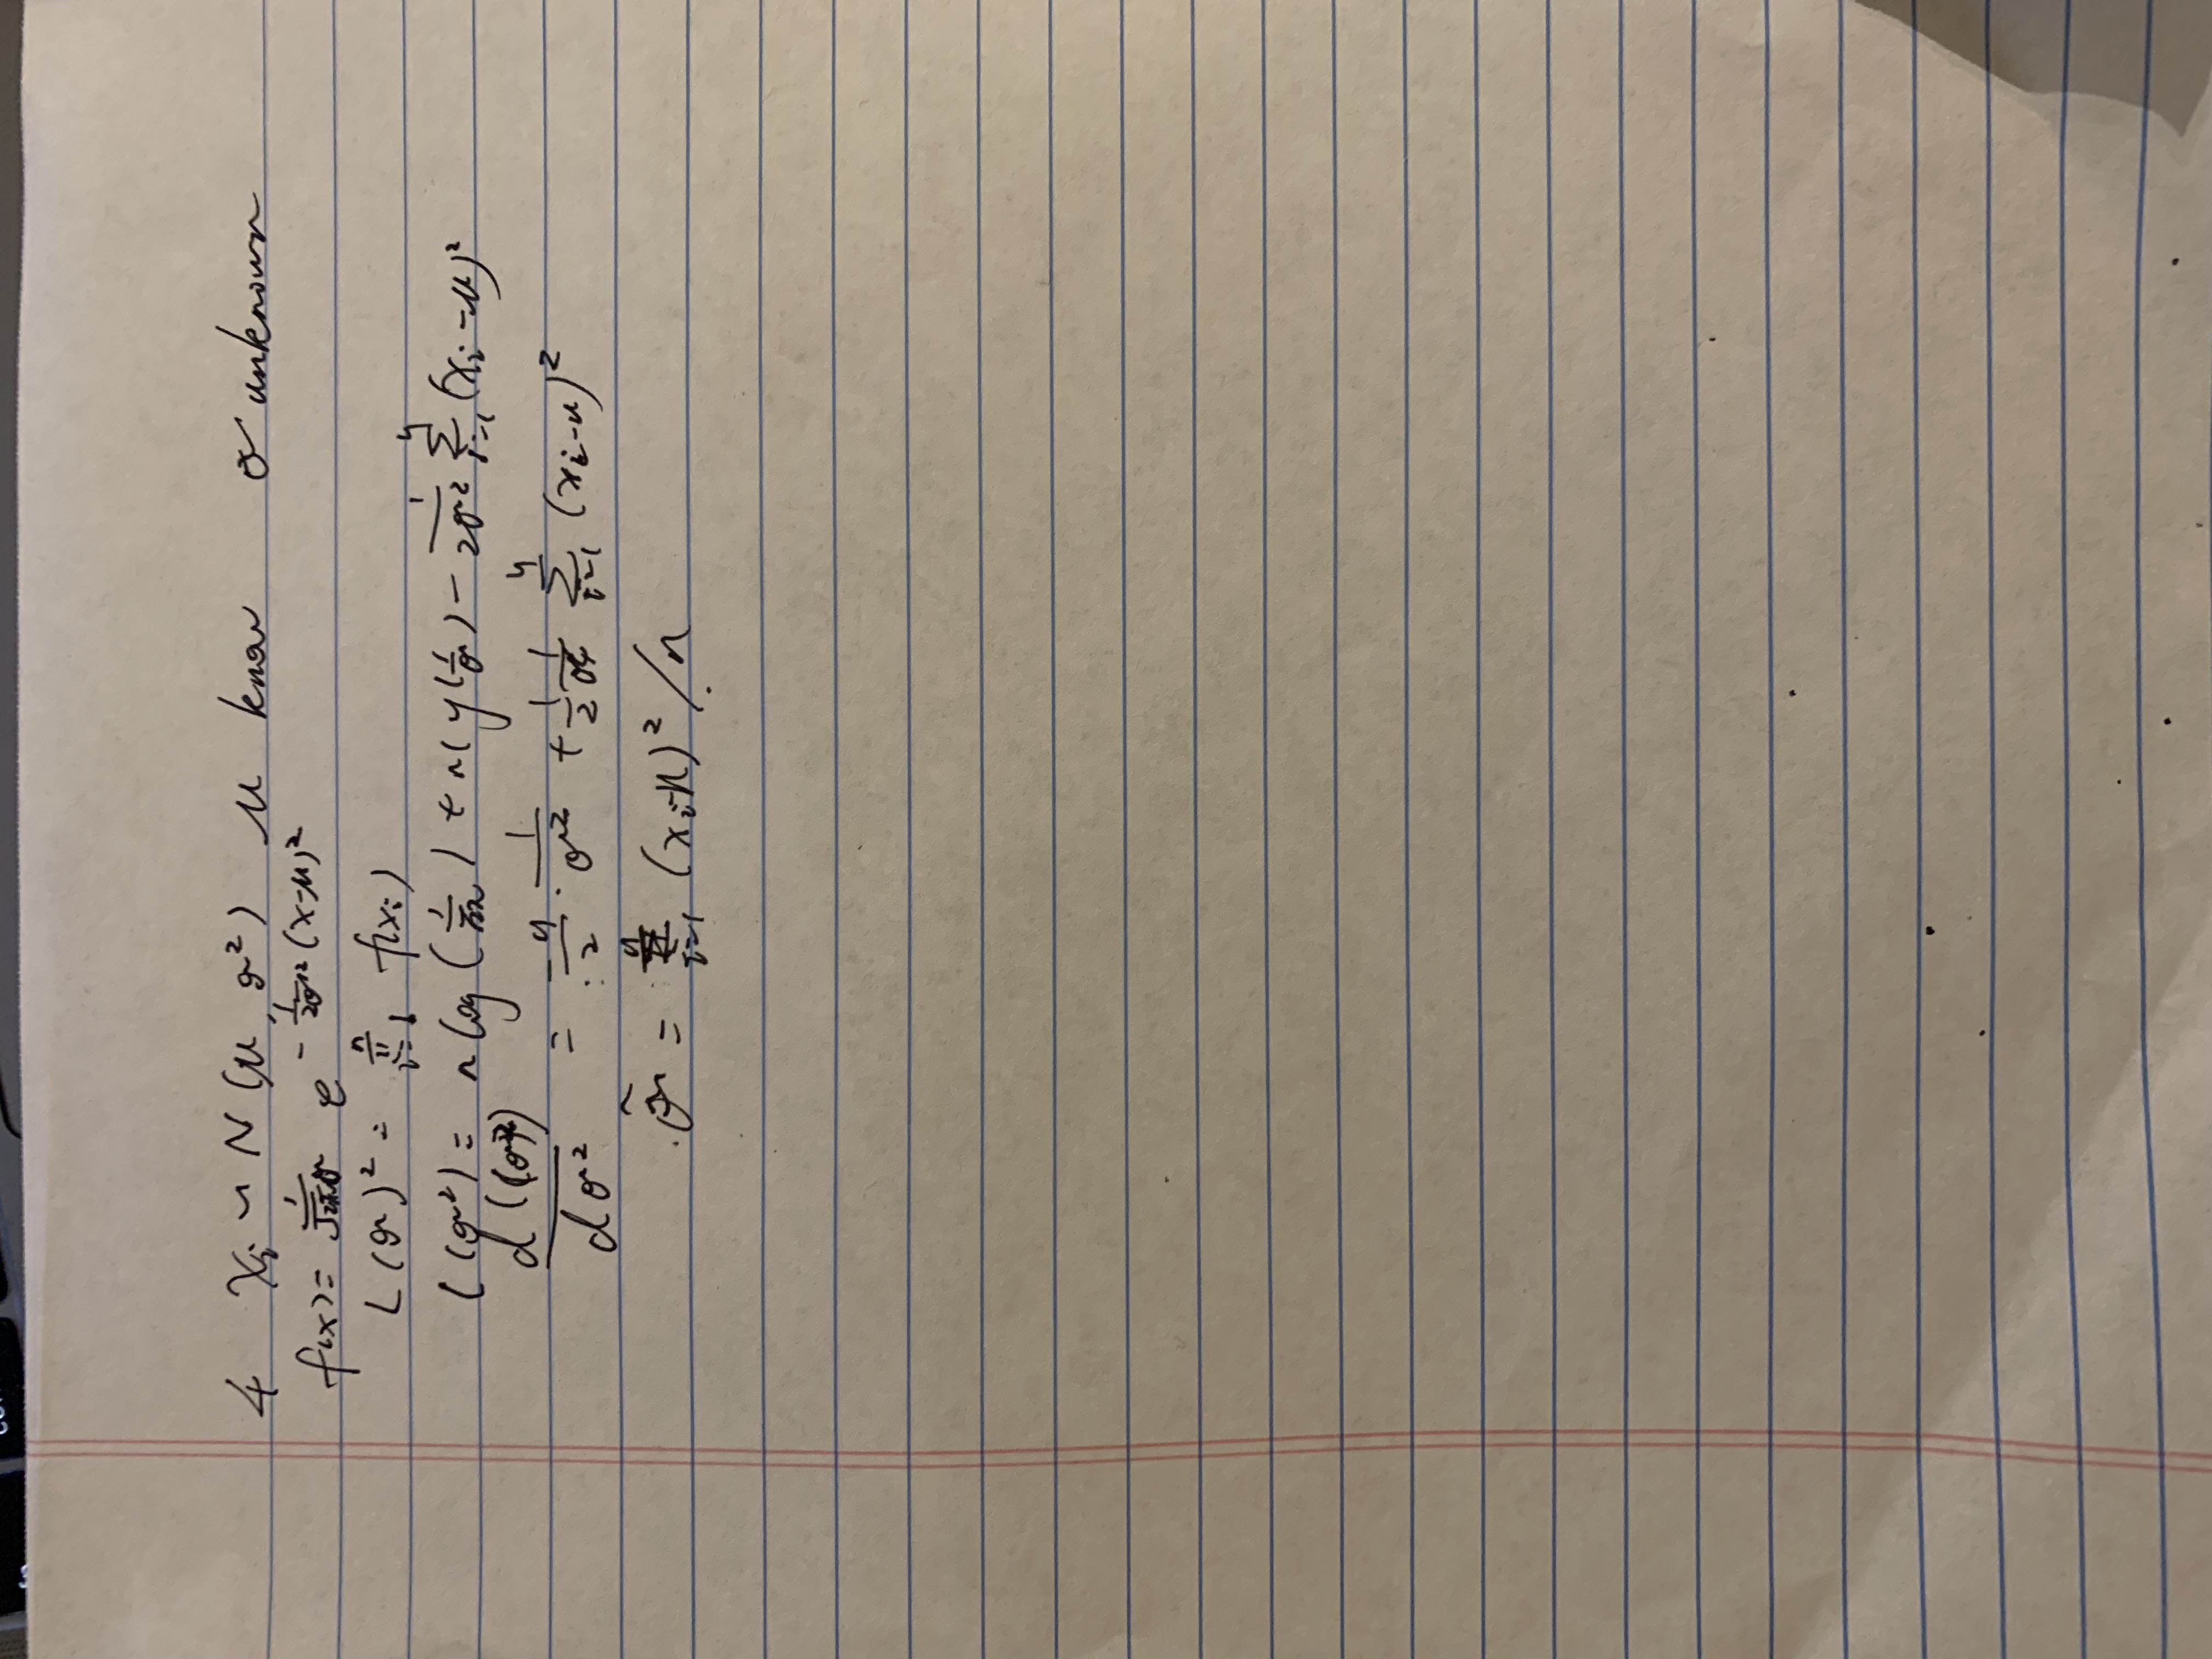 4 Xi ~ N(μ, σ²) μ know σ unknown
f(x) = 1/√2πσ e^(-1/2σ² (x-μ)²)
L(σ)² = ∏_{i=1}^n f(xi)
l(σ²) = n log(1/√2π) + n log(1/σ) - 1/2σ² Σ_{i=1}^n (xi-μ)²
d l(σ²)/dσ² = -n/2 · 1/σ² + 1/2 1/σ⁴ Σ_{i=1}^n (xi-μ)²
σ̂ = Σ_{i=1}^n (xi-μ)²/n